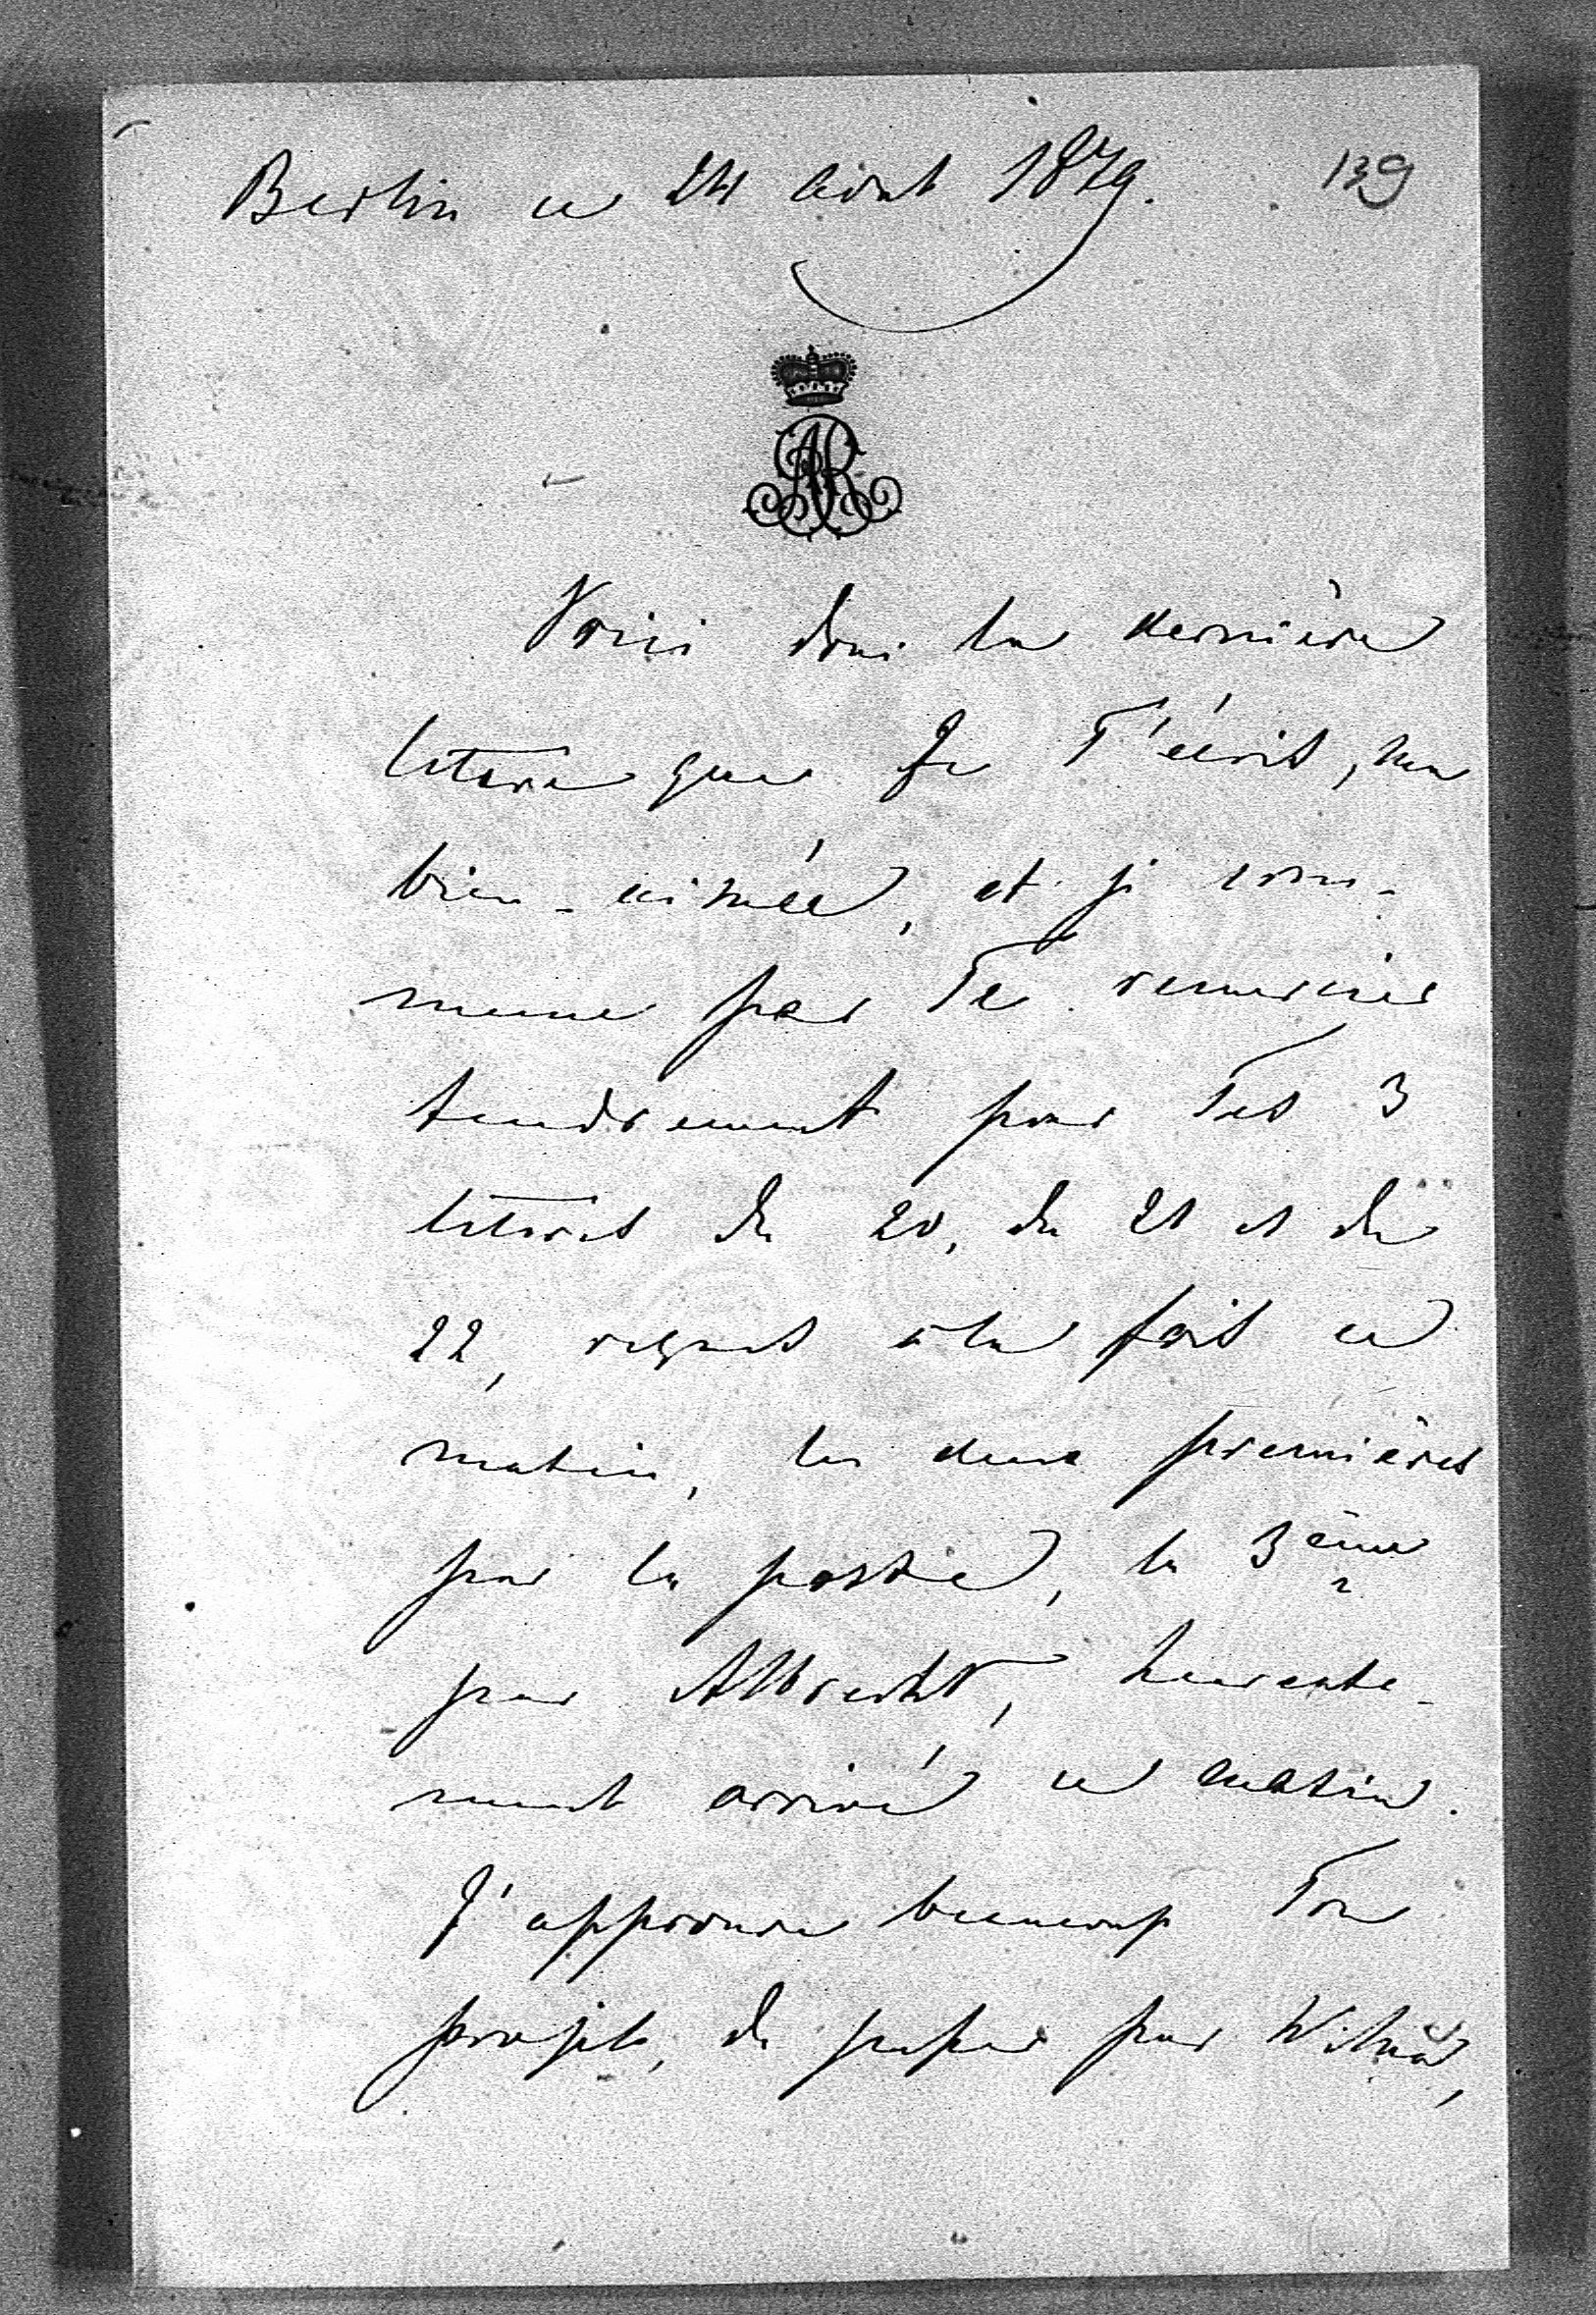 Berlin ce 24 août 1879. 139
AR
Voici donc la dernière
lettre que Je T'écris, ma
bien-aimée, et j'y com-
mence par Te remercier
tendrement pour Tes 3
lettres du 20, du 21 et du
22, reçues à la fois ce
matin, les deux premières
par la poste, la 3ème
par Albrecht, heureuse-
ment arrivé ce matin.
J'approuve beaucoup Ton
projet, de passer par Wilna,